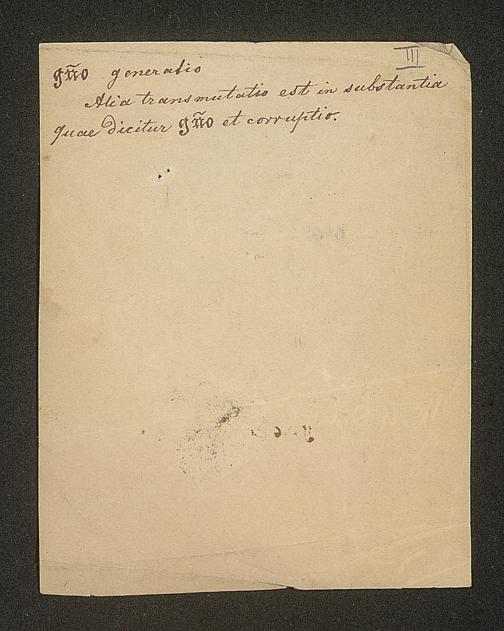 III
gño generatio
Alia transmutatio est in substantia
quae dicitur gño et corruptio.